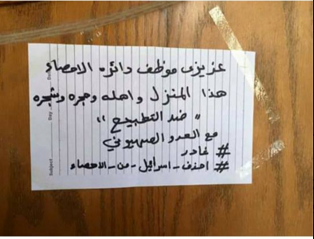 عزيزي موظف دائرة الاحصاء
هذا المنزل واهله وحجره وشجره
" ضد التطبيع "
مع العدو الصهيوني
# غادر
# احذف - اسرائيل - من - الاحصاء